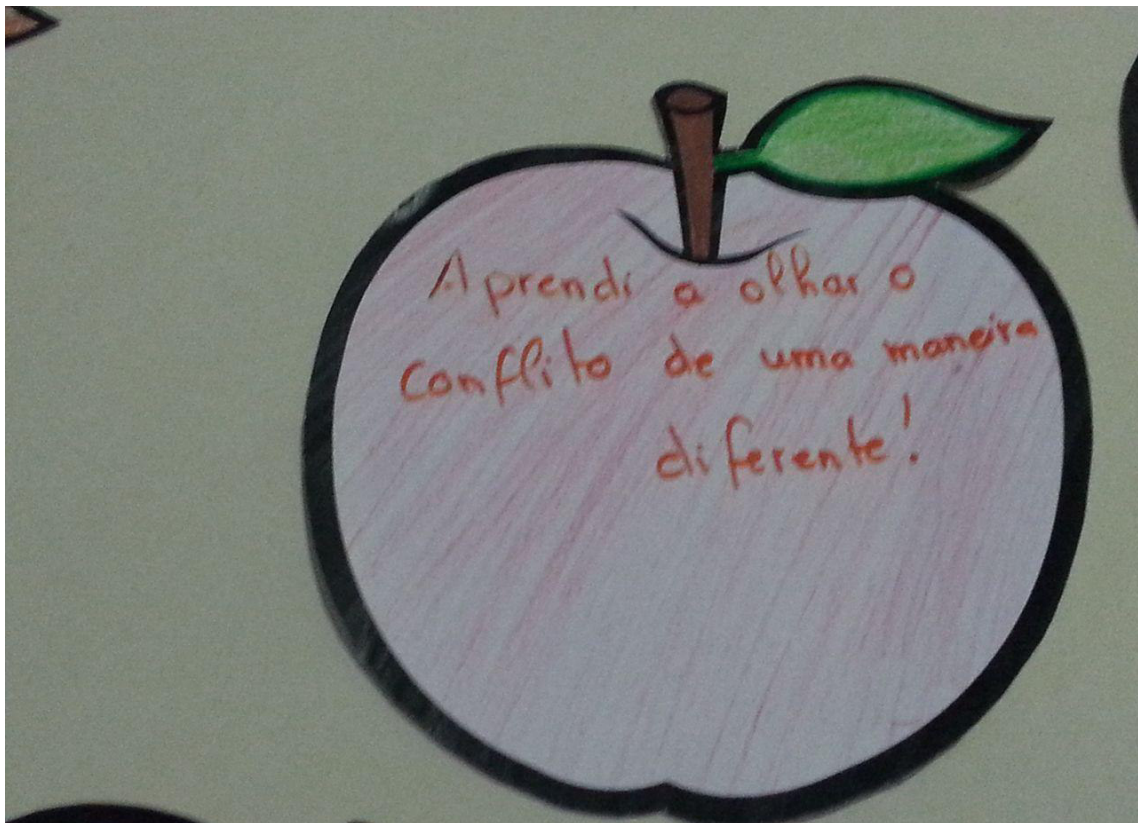 Aprendi a olhar o
conflito de uma maneira
diferente!